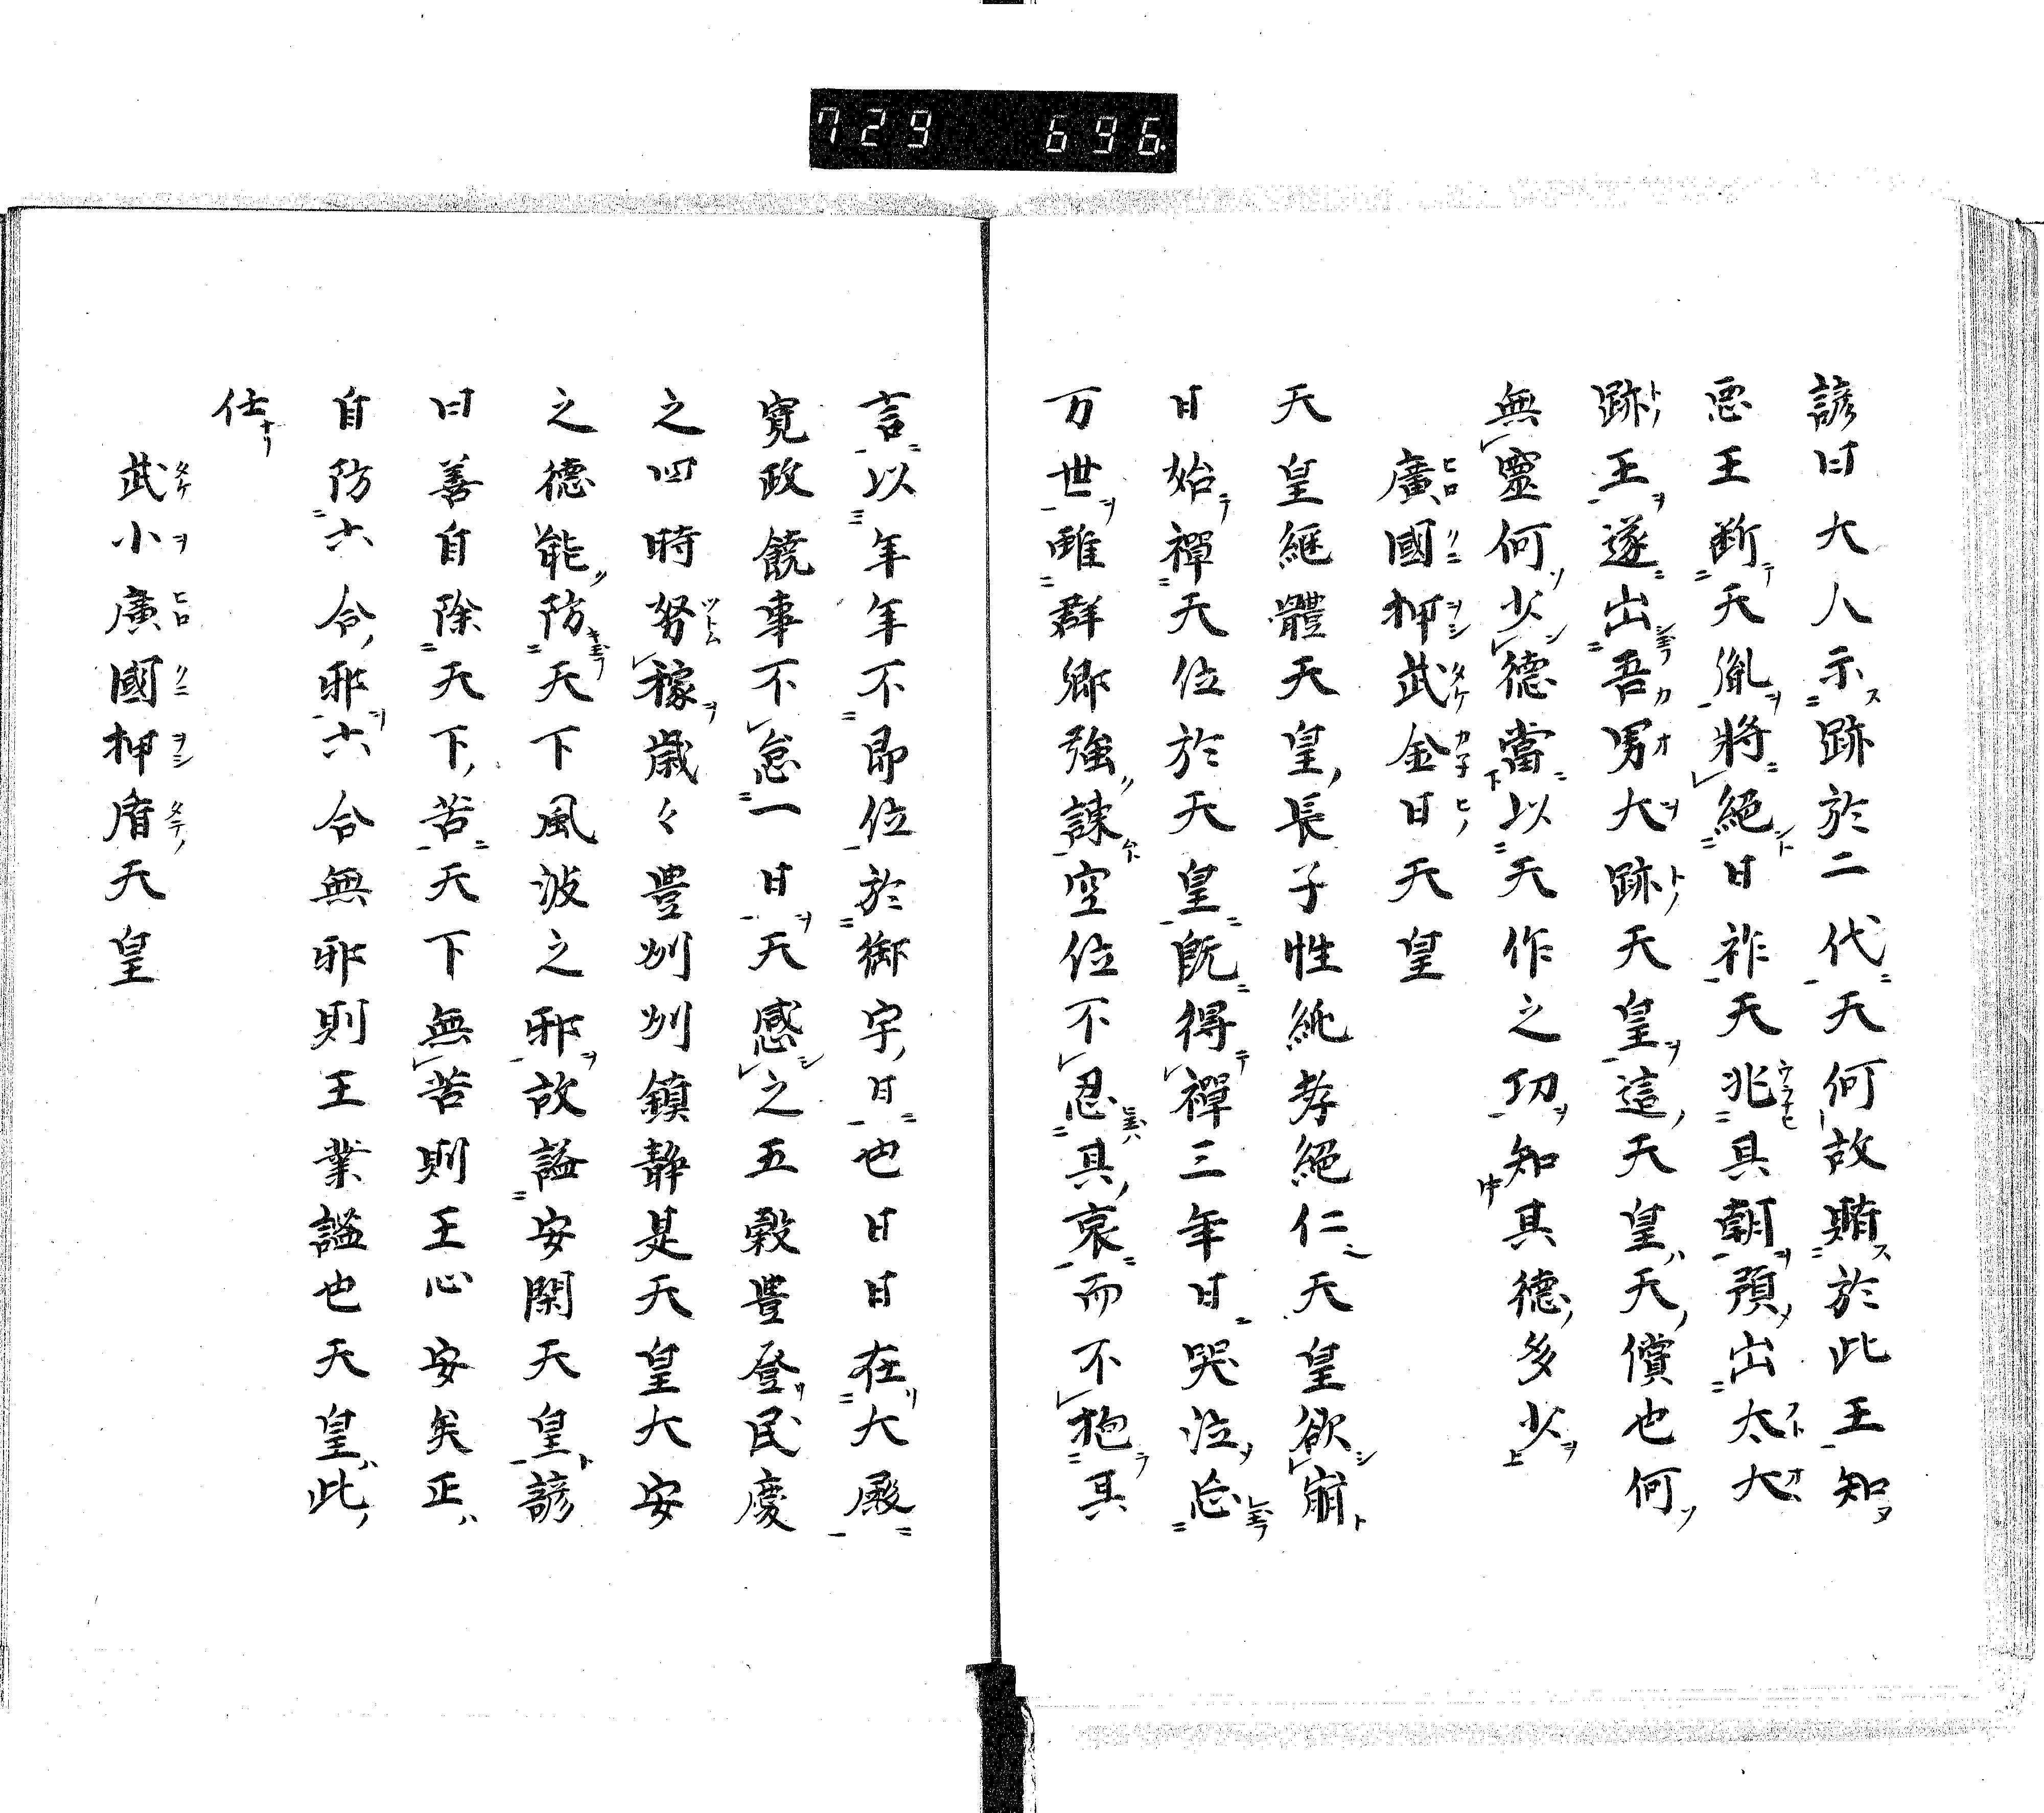 729 696
諺曰大人示跡於二代天何故賄於此王知
惡王断天胤將絕日祚天兆具朝預出太大
跡王遂出吾男大跡天皇這天皇天償也何
無靈何少德當以天作之功知其德多少
廣國押武金日天皇
天皇継體天皇長子性純孝絕仁天皇欲崩
日始禪天位於天皇既得禪三年日哭泣忘
万世雖群卿強諫空位不忍具哀而不抱具
言以年年不即位於御宇日也日日在大殿
寛政饒事不怠一日天感之五穀豊登民慶
之四時努稼歳々豊州州鎮静是天皇大安
之徳能防天下風波之邪故謚安閑天皇諺
曰善自除天下苦天下無苦則王心安矣正
自防六合邪六合無邪則王業謚也天皇此
仕
武小廣國押盾天皇